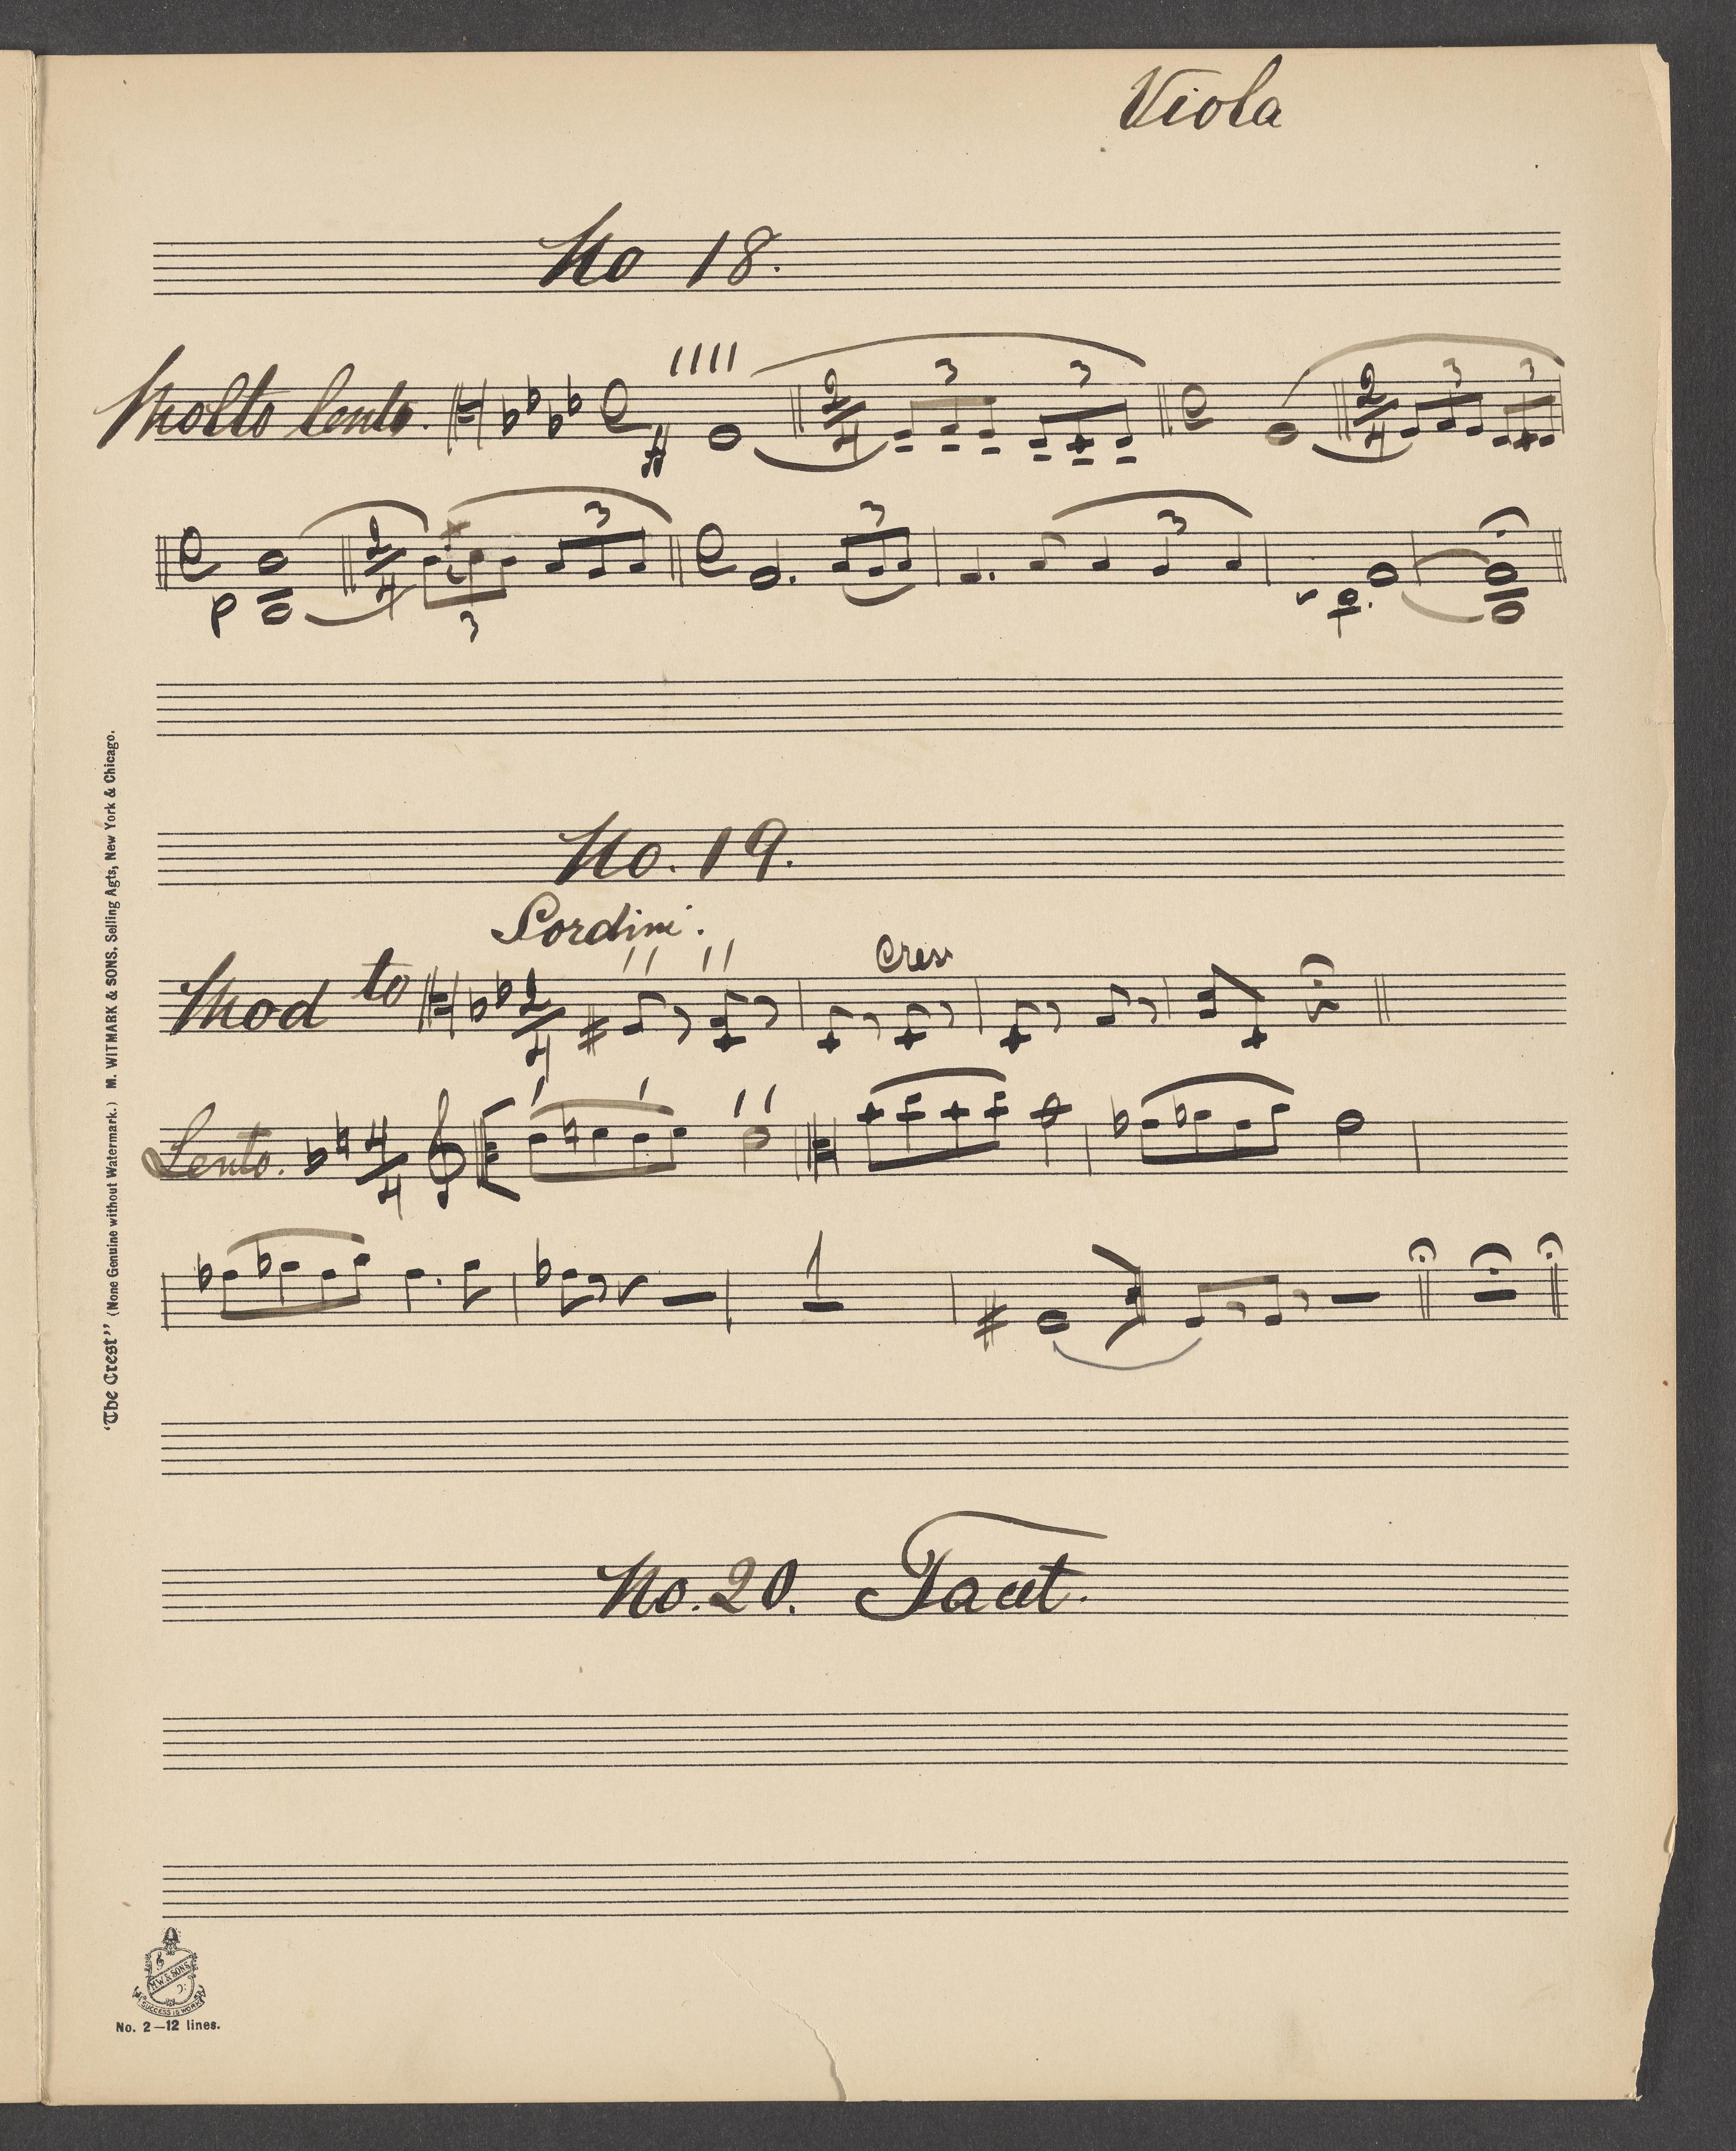 Viola
No 18.
Molto lento.
3 3 3 3
3 3 3 3
No. 19.
Sordini.
Mod to
Cres
Lento.
1
No. 20. Tacet.
"The Crest" (None Genuine without Watermark.) M. WITMARK & SONS, Selling Agts, New York & Chicago.
M.W & SONS
SUCCESS IS WORK
No. 2—12 lines.